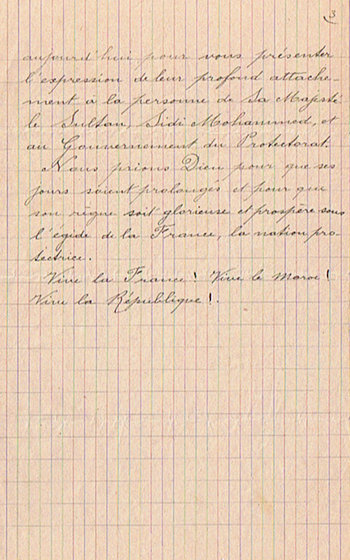 3
aujourd'hui pour vous présenter
l'expression de leur profond attache-
ment a la personne de Sa Majesté
le Sultan, Sidi Mohammed, et
au Gouvernement du Protectorat.
Nous prions Dieu pour que ses
jours soient prolongés et pour que
son règne soit glorieuse et prospère sous
l'égide de la France, la nation pro-
tectrice.
Vive la France! Vive le Maroc!
Vive la République!.